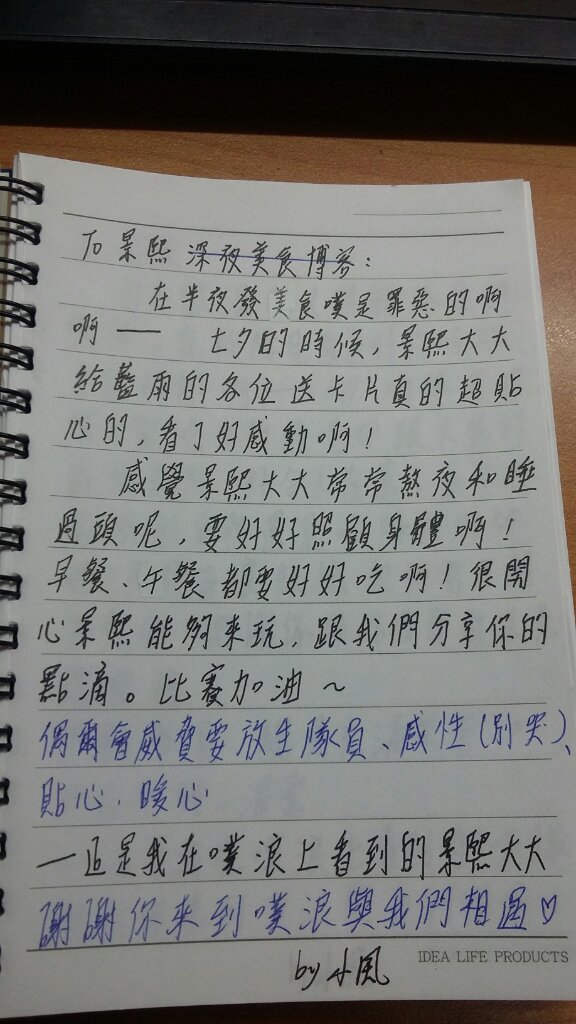 To 景熙 深夜美食博客：
在半夜發美食噗是罪惡的啊
啊—— 七夕的時候，景熙大大
給藍雨的各位送卡片真的超貼
心的，看了好感動啊！
感覺景熙大大常常熬夜和睡
過頭呢，要好好照顧身體啊！
早餐、午餐都要好好吃啊！很開
心景熙能夠來玩，跟我們分享你的
點滴。比賽加油～
偶爾會威脅要放生隊員、感性(別哭)、
貼心、暖心
—這是我在噗浪上看到的景熙大大
謝謝你來到噗浪與我們相遇♡
by 小風
IDEA LIFE PRODUCTS